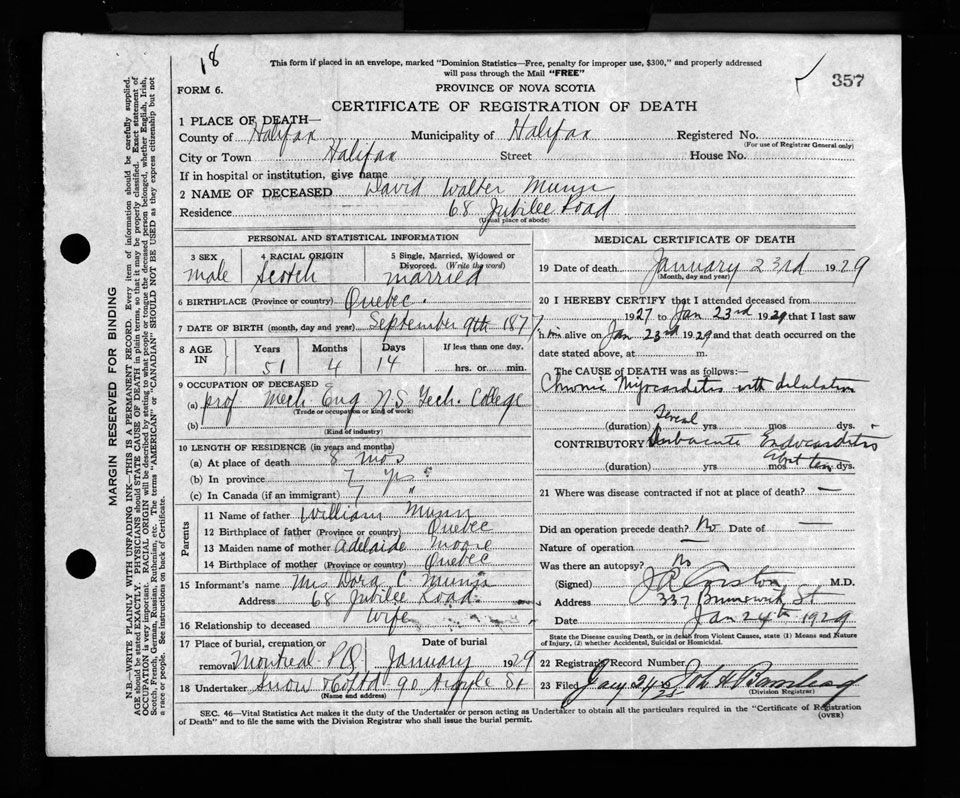 18
This form if placed in an envelope, marked "Dominion Statistics—Free, penalty for improper use, $300," and properly addressed
will pass through the Mail "FREE"
357
FORM 6.
PROVINCE OF NOVA SCOTIA
CERTIFICATE OF REGISTRATION OF DEATH
1 PLACE OF DEATH—
County of Halifax Municipality of Halifax Registered No.
(For use of Registrar General only)
City or Town Halifax Street House No.
If in hospital or institution, give name
2 NAME OF DECEASED David Walter Munn
Residence 68 Jubilee Road
(Usual place of abode)
PERSONAL AND STATISTICAL INFORMATION
3 SEX 4 RACIAL ORIGIN 5 Single, Married, Widowed or
Divorced. (Write the word)
male Scotch married
6 BIRTHPLACE (Province or country) Quebec.
7 DATE OF BIRTH (month, day and year) September 9th 1877
8 AGE IN Years Months Days If less than one day,
51 4 14 hrs. or min.
9 OCCUPATION OF DECEASED
(a) prof Mech. Eng N.S. Tech. College
(Trade or occupation or kind of work)
(b)
(Kind of industry)
10 LENGTH OF RESIDENCE (in years and months)
(a) At place of death 8 mos
(b) In province 7 yrs
(c) In Canada (if an immigrant) 7 "
Parents
11 Name of father William Munn
12 Birthplace of father (Province or country) Quebec
13 Maiden name of mother Adelaide Moore
14 Birthplace of mother (Province or country) Quebec
15 Informant's name Mrs Dora C. Munn
Address 68 Jubilee Road
16 Relationship to deceased Wife
17 Place of burial, cremation or Date of burial
removal Montreal P.Q. January 1929
18 Undertaker Snow & Co Ltd 90 Argyle St
(Name and address)
MEDICAL CERTIFICATE OF DEATH
19 Date of death January 23rd 1929
(Month, day and year)
20 I HEREBY CERTIFY that I attended deceased from
1927 to Jan 23rd 1929 that I last saw
him alive on Jan 23rd 1929 and that death occurred on the
date stated above, at m.
The CAUSE OF DEATH was as follows:—
Chronic Myocarditis with dilatation
(duration) Several yrs mos dys.
CONTRIBUTORY Subacute Endocarditis
(duration) yrs mos dys.
21 Where was disease contracted if not at place of death? —
Did an operation precede death? No Date of —
Nature of operation —
Was there an autopsy? No
(Signed) M.D.
Address 337 Brunswick St
Date Jan 24th 1929
State the Disease causing Death, or in death from Violent Causes, state (1) Means and Nature
of Injury, (2) whether Accidental, Suicidal or Homicidal.
22 Registrar's Record Number
23 Filed Jany 24
(Division Registrar)
SEC. 46—Vital Statistics Act makes it the duty of the Undertaker or person acting as Undertaker to obtain all the particulars required in the "Certificate of Registration
of Death" and to file the same with the Division Registrar who shall issue the burial permit.
(OVER)
MARGIN RESERVED FOR BINDING
N.B.—WRITE PLAINLY WITH UNFADING INK—THIS IS A PERMANENT RECORD. Every item of information should be carefully supplied.
AGE should be stated EXACTLY. PHYSICIANS should STATE CAUSE OF DEATH in plain terms, so that it may be properly classified. Exact statement of
OCCUPATION is very important. RACIAL ORIGIN will be described by stating to what people or tongue the deceased person belonged, whether English, Irish,
Scotch, French, German, Russian, Ruthenian, etc. The terms "AMERICAN" or "CANADIAN" SHOULD NOT BE USED as they express citizenship but not
a race or people. See instructions on back of Certificate.